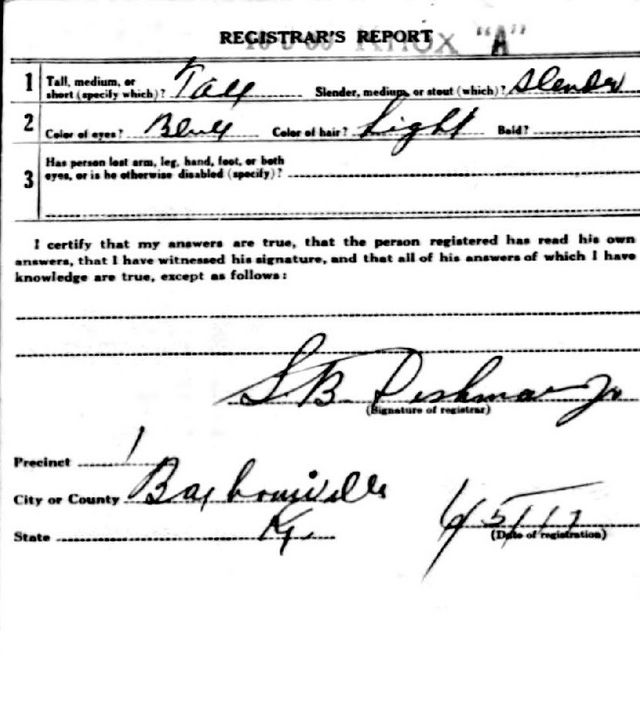 REGISTRAR'S REPORT
KNOX "A"
1 Tall, medium, or short (specify which)? Tall Slender, medium, or stout (which)? Slender
2 Color of eyes? Blue Color of hair? Light Bald?
3 Has person lost arm, leg, hand, foot, or both
eyes, or is he otherwise disabled (specify)?
I certify that my answers are true, that the person registered has read his own
answers, that I have witnessed his signature, and that all of his answers of which I have
knowledge are true, except as follows:
S. B. Dishman Jr
(Signature of registrar)
Precinct 1
City or County Barbourville
State Ky. 6/5/17
(Date of registration)